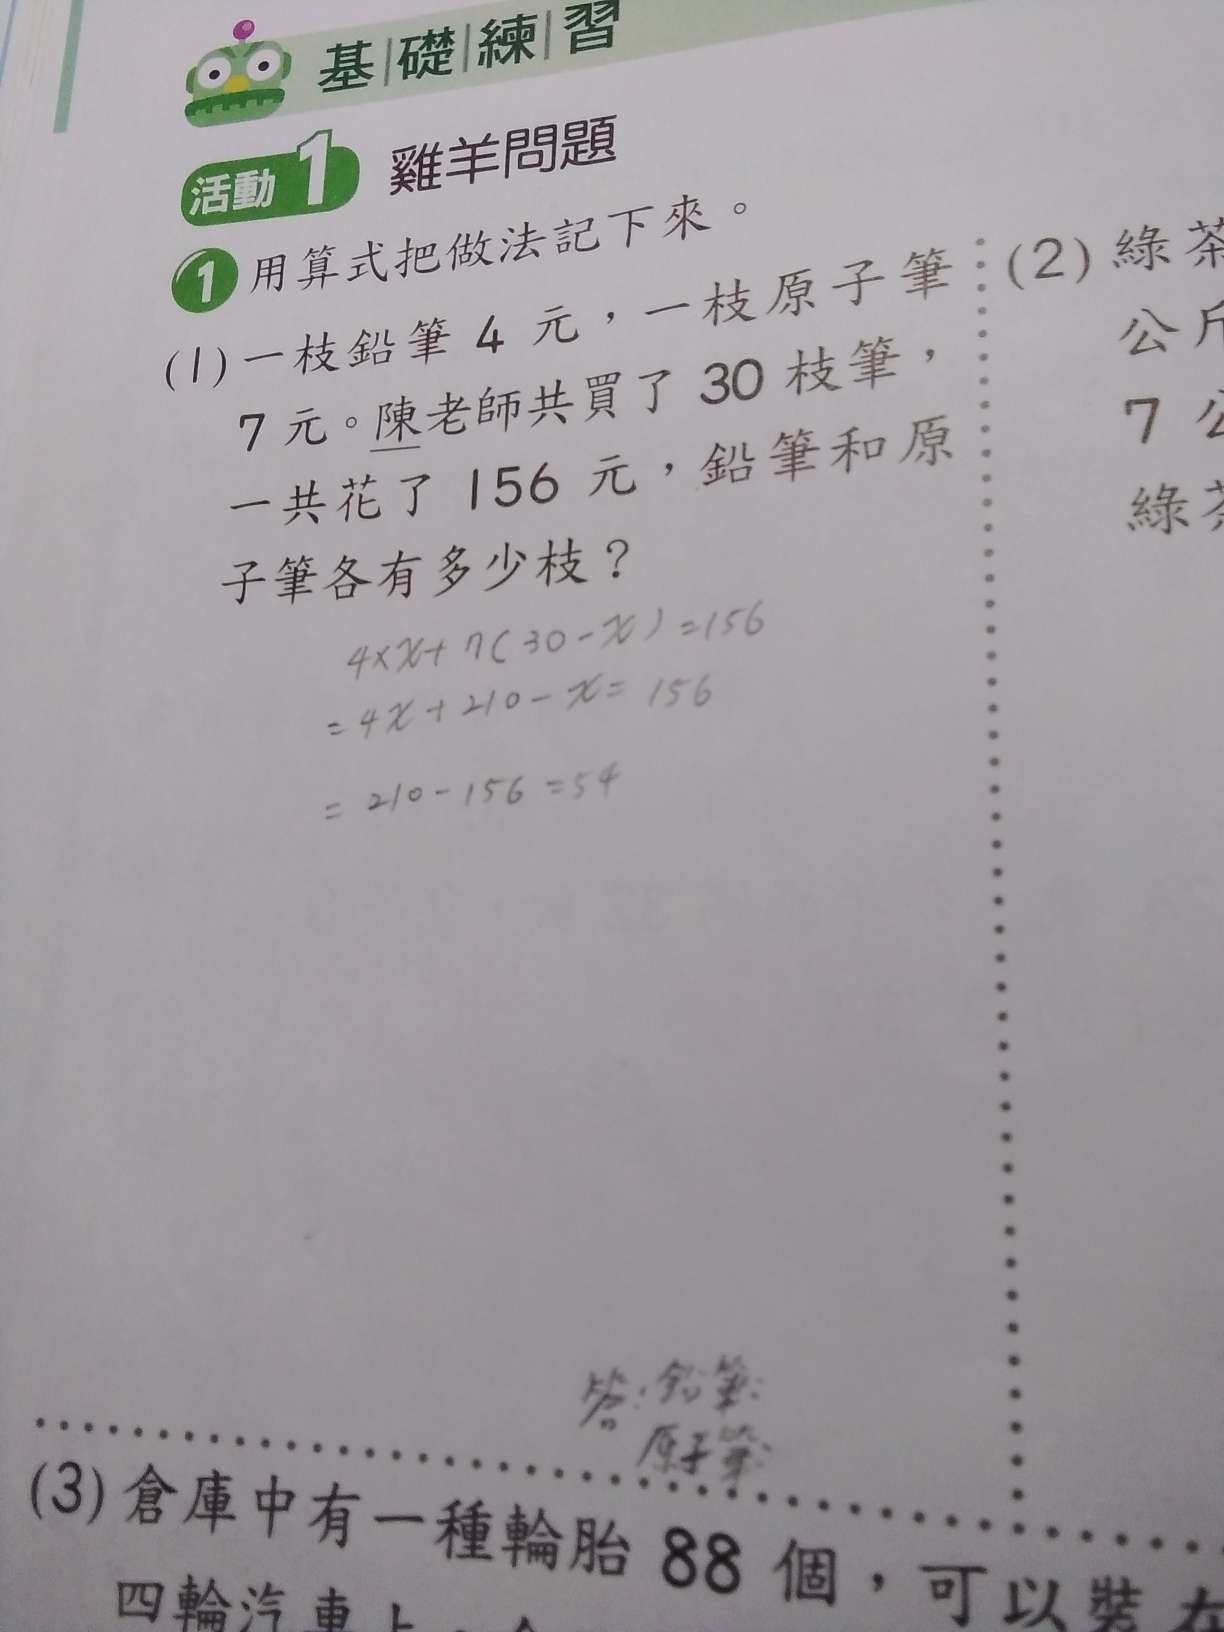 基礎練習
活動1 雞羊問題
1 用算式把做法記下來。
(1) 一枝鉛筆 4 元，一枝原子筆
7 元。陳老師共買了 30 枝筆，
一共花了 156 元，鉛筆和原
子筆各有多少枝？
4×x+7(30-x)=156
=4x+210-x=156
=210-156=54
答:鉛筆:
原子筆:
(2) 綠茶
公斤
7 公
綠茶
(3) 倉庫中有一種輪胎 88 個，可以裝在
四輪汽車上。